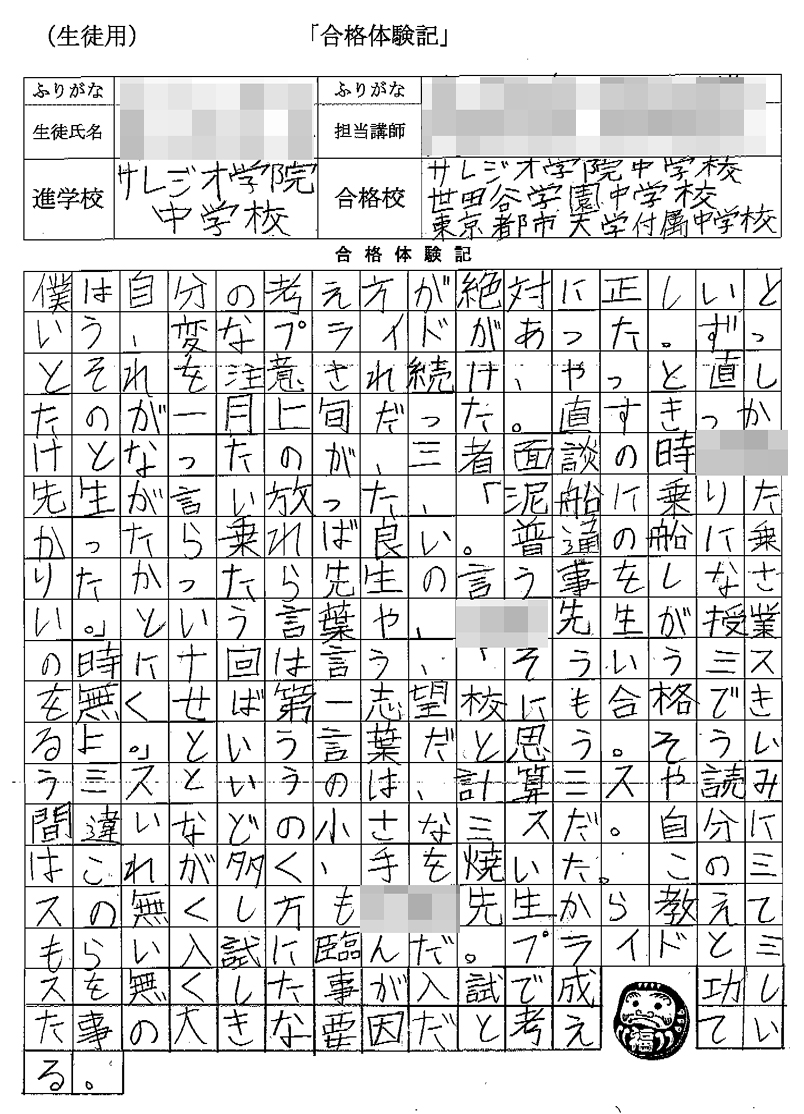 （生徒用）
「合格体験記」
ふりがな
ふりがな
生徒氏名
担当講師
進学校
サレジオ学院
中学校
合格校
サレジオ学院中学校
世田谷学園中学校
東京都市大学付属中学校
合格体験記
僕は自分の考え方が絶対に正しいと
いう、変なプライドがあった。ずっ
とそれを注意され続け、やっと直し
たのが一月上旬だった。直すきっか
けとなったのが、三者面談の時
先生が言い放った、「泥船に乗りた
かったら乗れば良い。普通の船に乗
りたかったら先生の言う事をしなさ
い。」という言葉や、先生が授業
の時に十回は言う、「そういうミス
を無くせば第一志望校にも合格でき
るよ。」という言葉だと思う。そうい
うミスというのは、計算ミスや読み
間違いなどの小さなミスだ。自分に
はこれが多く、手を焼いた。このミ
スの無くし方も先生から教えて
もらい入試に臨んだ。プライドとミ
スを無くした事が入試で成功し
た事の大きな要因だと考えてい
る。
福